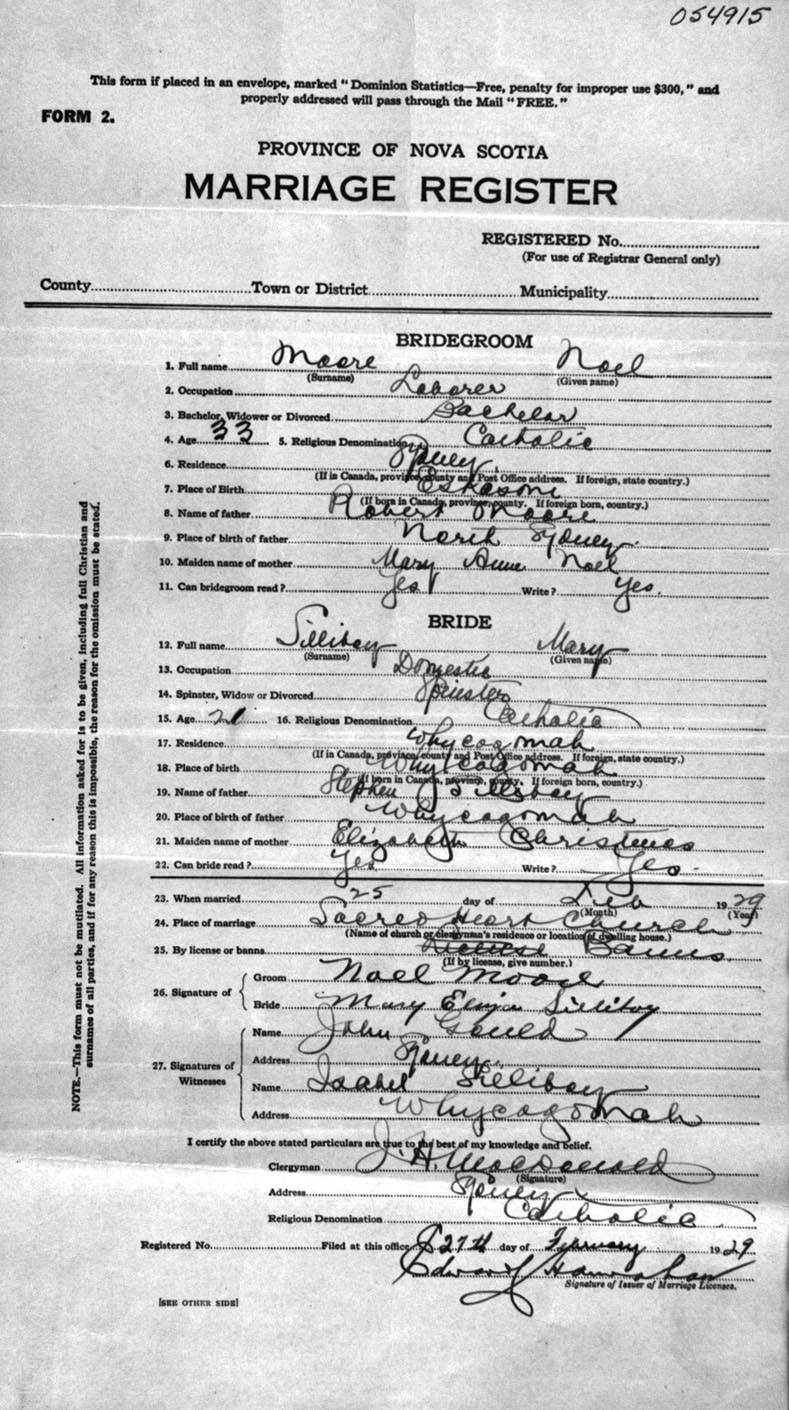 054915
This form if placed in an envelope, marked "Dominion Statistics—Free, penalty for improper use $300," and
properly addressed will pass through the Mail "FREE."
FORM 2.
PROVINCE OF NOVA SCOTIA
MARRIAGE REGISTER
REGISTERED No.
(For use of Registrar General only)
County Town or District Municipality
BRIDEGROOM
1. Full name Moore Noel
(Surname) (Given name)
2. Occupation Laborer
3. Bachelor, Widower or Divorced Bachelor
4. Age 33 5. Religious Denomination Catholic
6. Residence Sydney
(If in Canada, province, county and Post Office address. If foreign, state country.)
7. Place of Birth Eskasoni
(If born in Canada, province, county. If foreign born, country.)
8. Name of father Robert Moore
9. Place of birth of father North Sydney
10. Maiden name of mother Mary Anne Noel
11. Can bridegroom read? Yes Write? Yes.
BRIDE
12. Full name Silliboy Mary
(Surname) (Given name)
13. Occupation Domestic
14. Spinster, Widow or Divorced Spinster
15. Age 21 16. Religious Denomination Catholic
17. Residence Whycogomah
(If in Canada, province, county and Post Office address. If foreign, state country.)
18. Place of birth Whycogomah
(If born in Canada, province, county. If foreign born, country.)
19. Name of father Stephen Silliboy
20. Place of birth of father Whycogomah
21. Maiden name of mother Elizabeth Christmas
22. Can bride read? Yes Write? Yes.
23. When married 25 day of Feb 1929
(Month) (Year)
24. Place of marriage Sacred Heart Church
(Name of church or clergyman's residence or location of dwelling house.)
25. By license or banns Banns.
(If by license, give number.)
26. Signature of
Groom Noel Moore
Bride Mary Silliboy
27. Signatures of Witnesses
Name John Gould
Address Sydney
Name Isabel Silliboy
Address Whycogomah
I certify the above stated particulars are true to the best of my knowledge and belief.
Clergyman J. H. MacDonald
(Signature)
Address Sydney
Religious Denomination Catholic
Registered No. Filed at this office 27th day of February 1929
Edward Hanrahan
Signature of Issuer of Marriage Licenses.
[SEE OTHER SIDE]
NOTE.—This form must not be mutilated. All information asked for is to be given, including full Christian and
surnames of all parties, and if for any reason this is impossible, the reason for the omission must be stated.